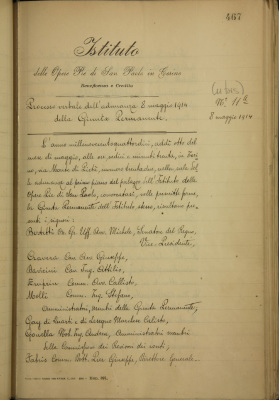 467
Istituto
delle Opere Pie di San Paolo in Torino
Beneficenza e Credito
N.º 11º
8 maggio 1914
Processo verbale dell'adunanza 8 maggio 1914
della Giunta Permanente.
L'anno millenovecentoquattordici, addì otto del
mese di maggio, alle ore sedici e minuti trenta, in Tori-
no, via Monte di Pietà, numero trentadue, nella sala del-
le adunanze al primo piano del palazzo dell'Istituto delle
Opere Pie di San Paolo, convocatasi, nelle prescritte forme,
la Giunta Permanente dell'Istituto stesso, risultano pre-
senti i signori:
Badetti Uff. Avv. Michele, Senatore del Regno,
Vice Presidente,
Cravero Cav. Avv. Giuseppe,
Bargini Cav. Ing. Attilio,
Comm. Avv. Callisto,
Molli Comm. Ing. Stefano,
Amministratori, membri della Giunta Permanente;
Gay di Quarti e di Marchese Carlo,
Gonella Nob. Ing. Andrea, Amministratori membri
della Commissione dei Revisori dei conti;
Fabris Comm. Dott. Giuseppe, Direttore Generale